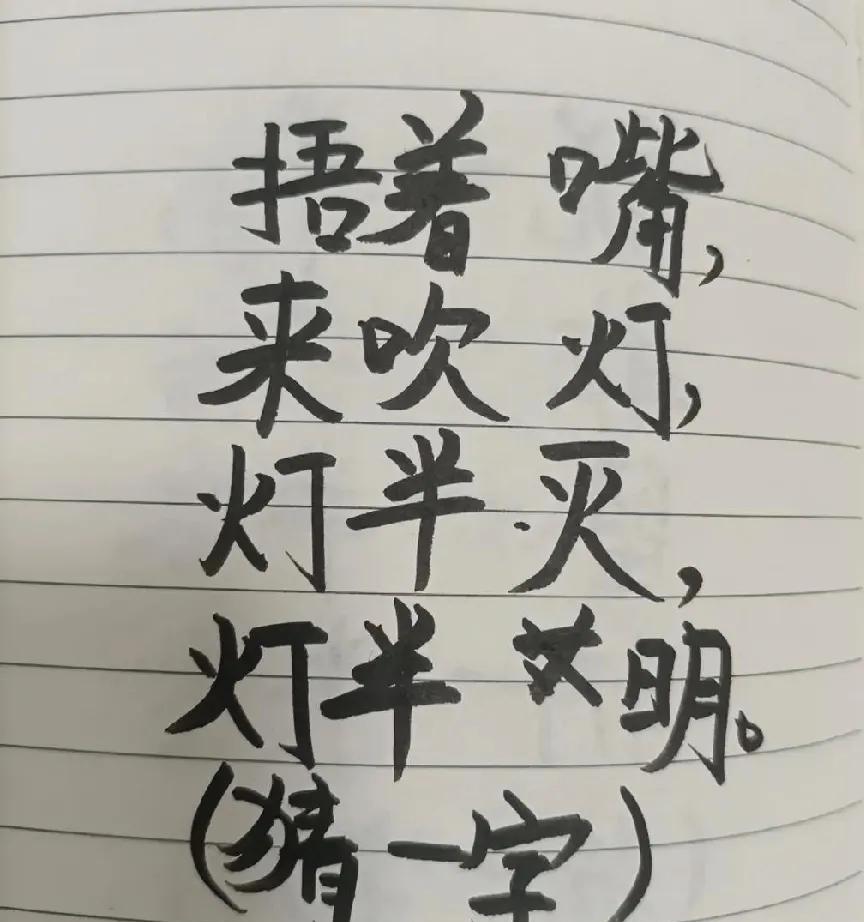 捂着嘴,
来吹灯,
灯半灭,
灯半明。
(猜一字)